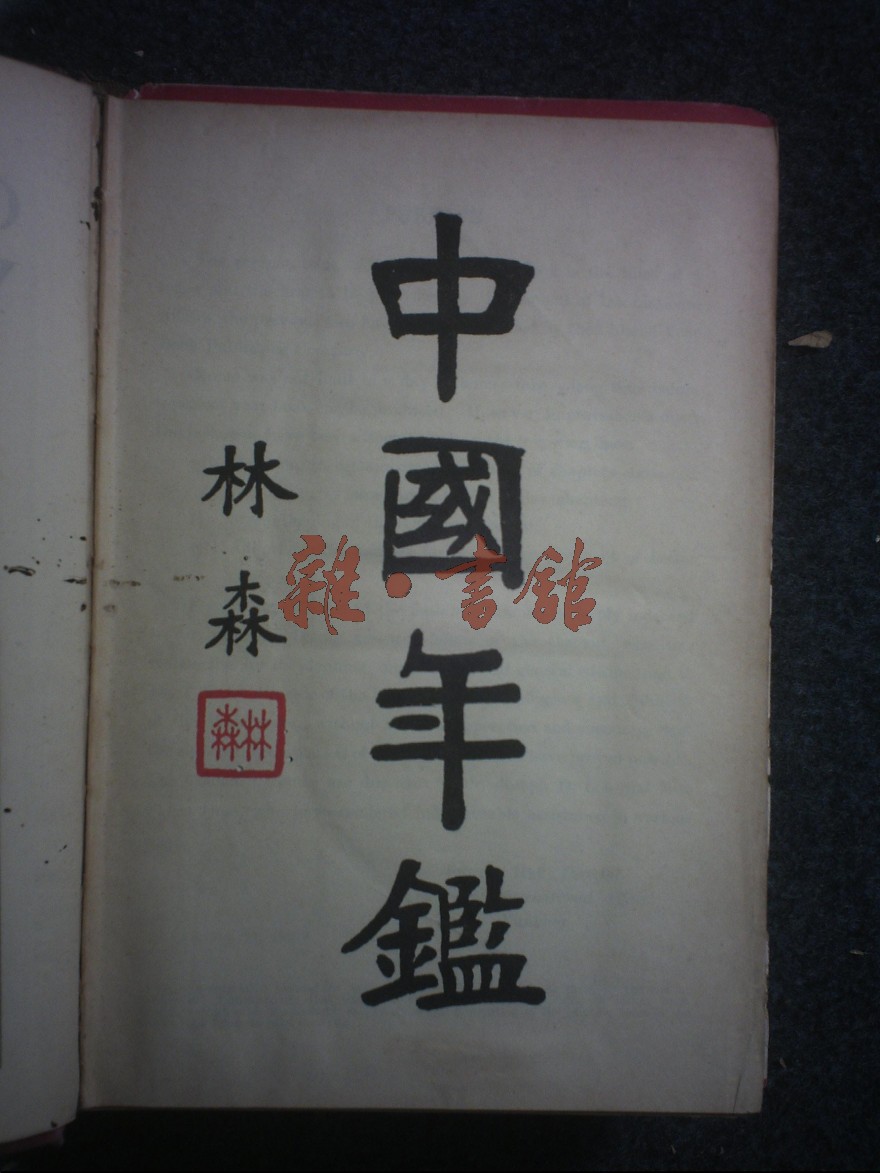 中國年鑑
林森
林森
雜·書館